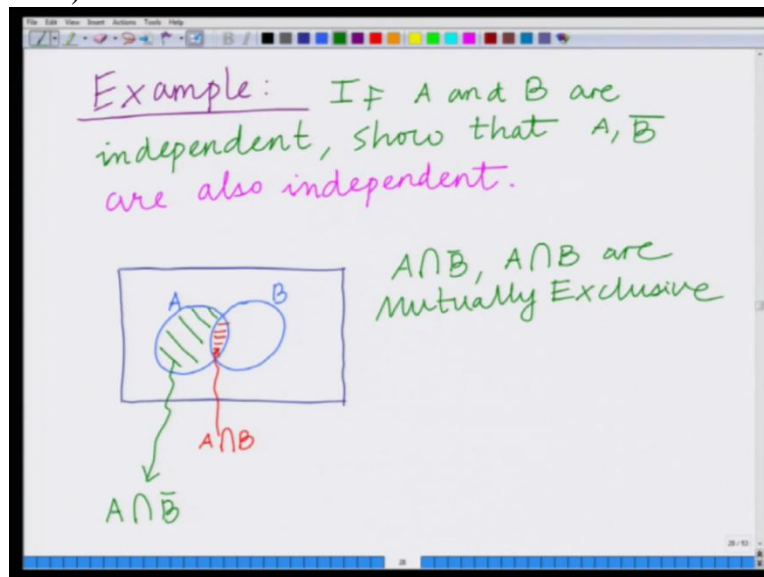 File Edit View Insert Actions Tools Help
Example: If A and B are
independent, show that A, B̅
are also independent.
A∩B̅, A∩B are
Mutually Exclusive
A
B
A∩B
A∩B̅
28 / 93
28